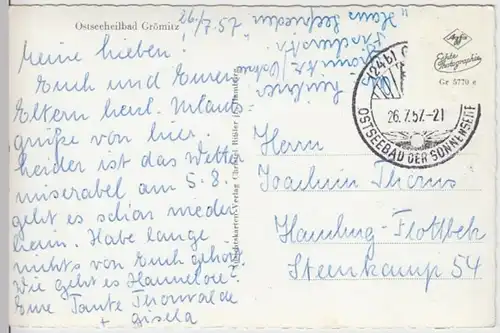 Ostseeheilbad Grömitz
26/7.57
Meine lieben!
Euch und Euren
Eltern herzl. Urlaubs-
grüße von hier.
Leider ist das Wetter
miserabel am 5.8.
geht es schon wieder
heim. Habe lange
nichts von Euch gehört.
Wie geht es Hannelore?
Eure Tante Thorwalde
+ Gisela
"Haus Seefrieden"
Agfa
Echte
Photographie
Gr 5770 e
(24b) G
26.7.57.-21
OSTSEEBAD DER SONNENSEITE
Herrn
Joachim Thoms
Hamburg-Flottbek
Steenkamp 54